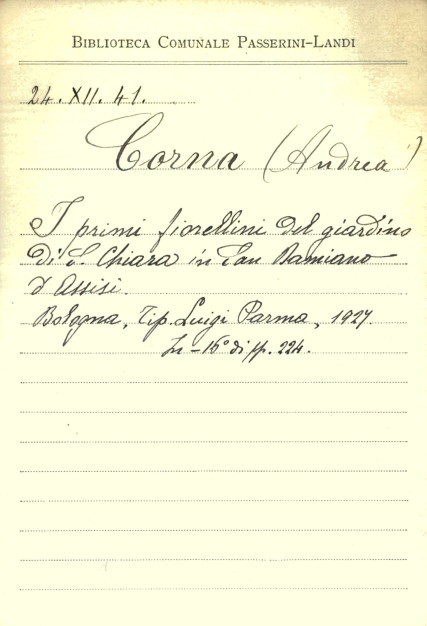 BIBLIOTECA COMUNALE PASSERINI-LANDI
24.XII.41.
Corna (Andrea)
I primi fiorellini del giardino
di S. Chiara in San Damiano
d'Assisi.
Bologna, Tip. Luigi Parma, 1927.
In-16° di pp. 224.